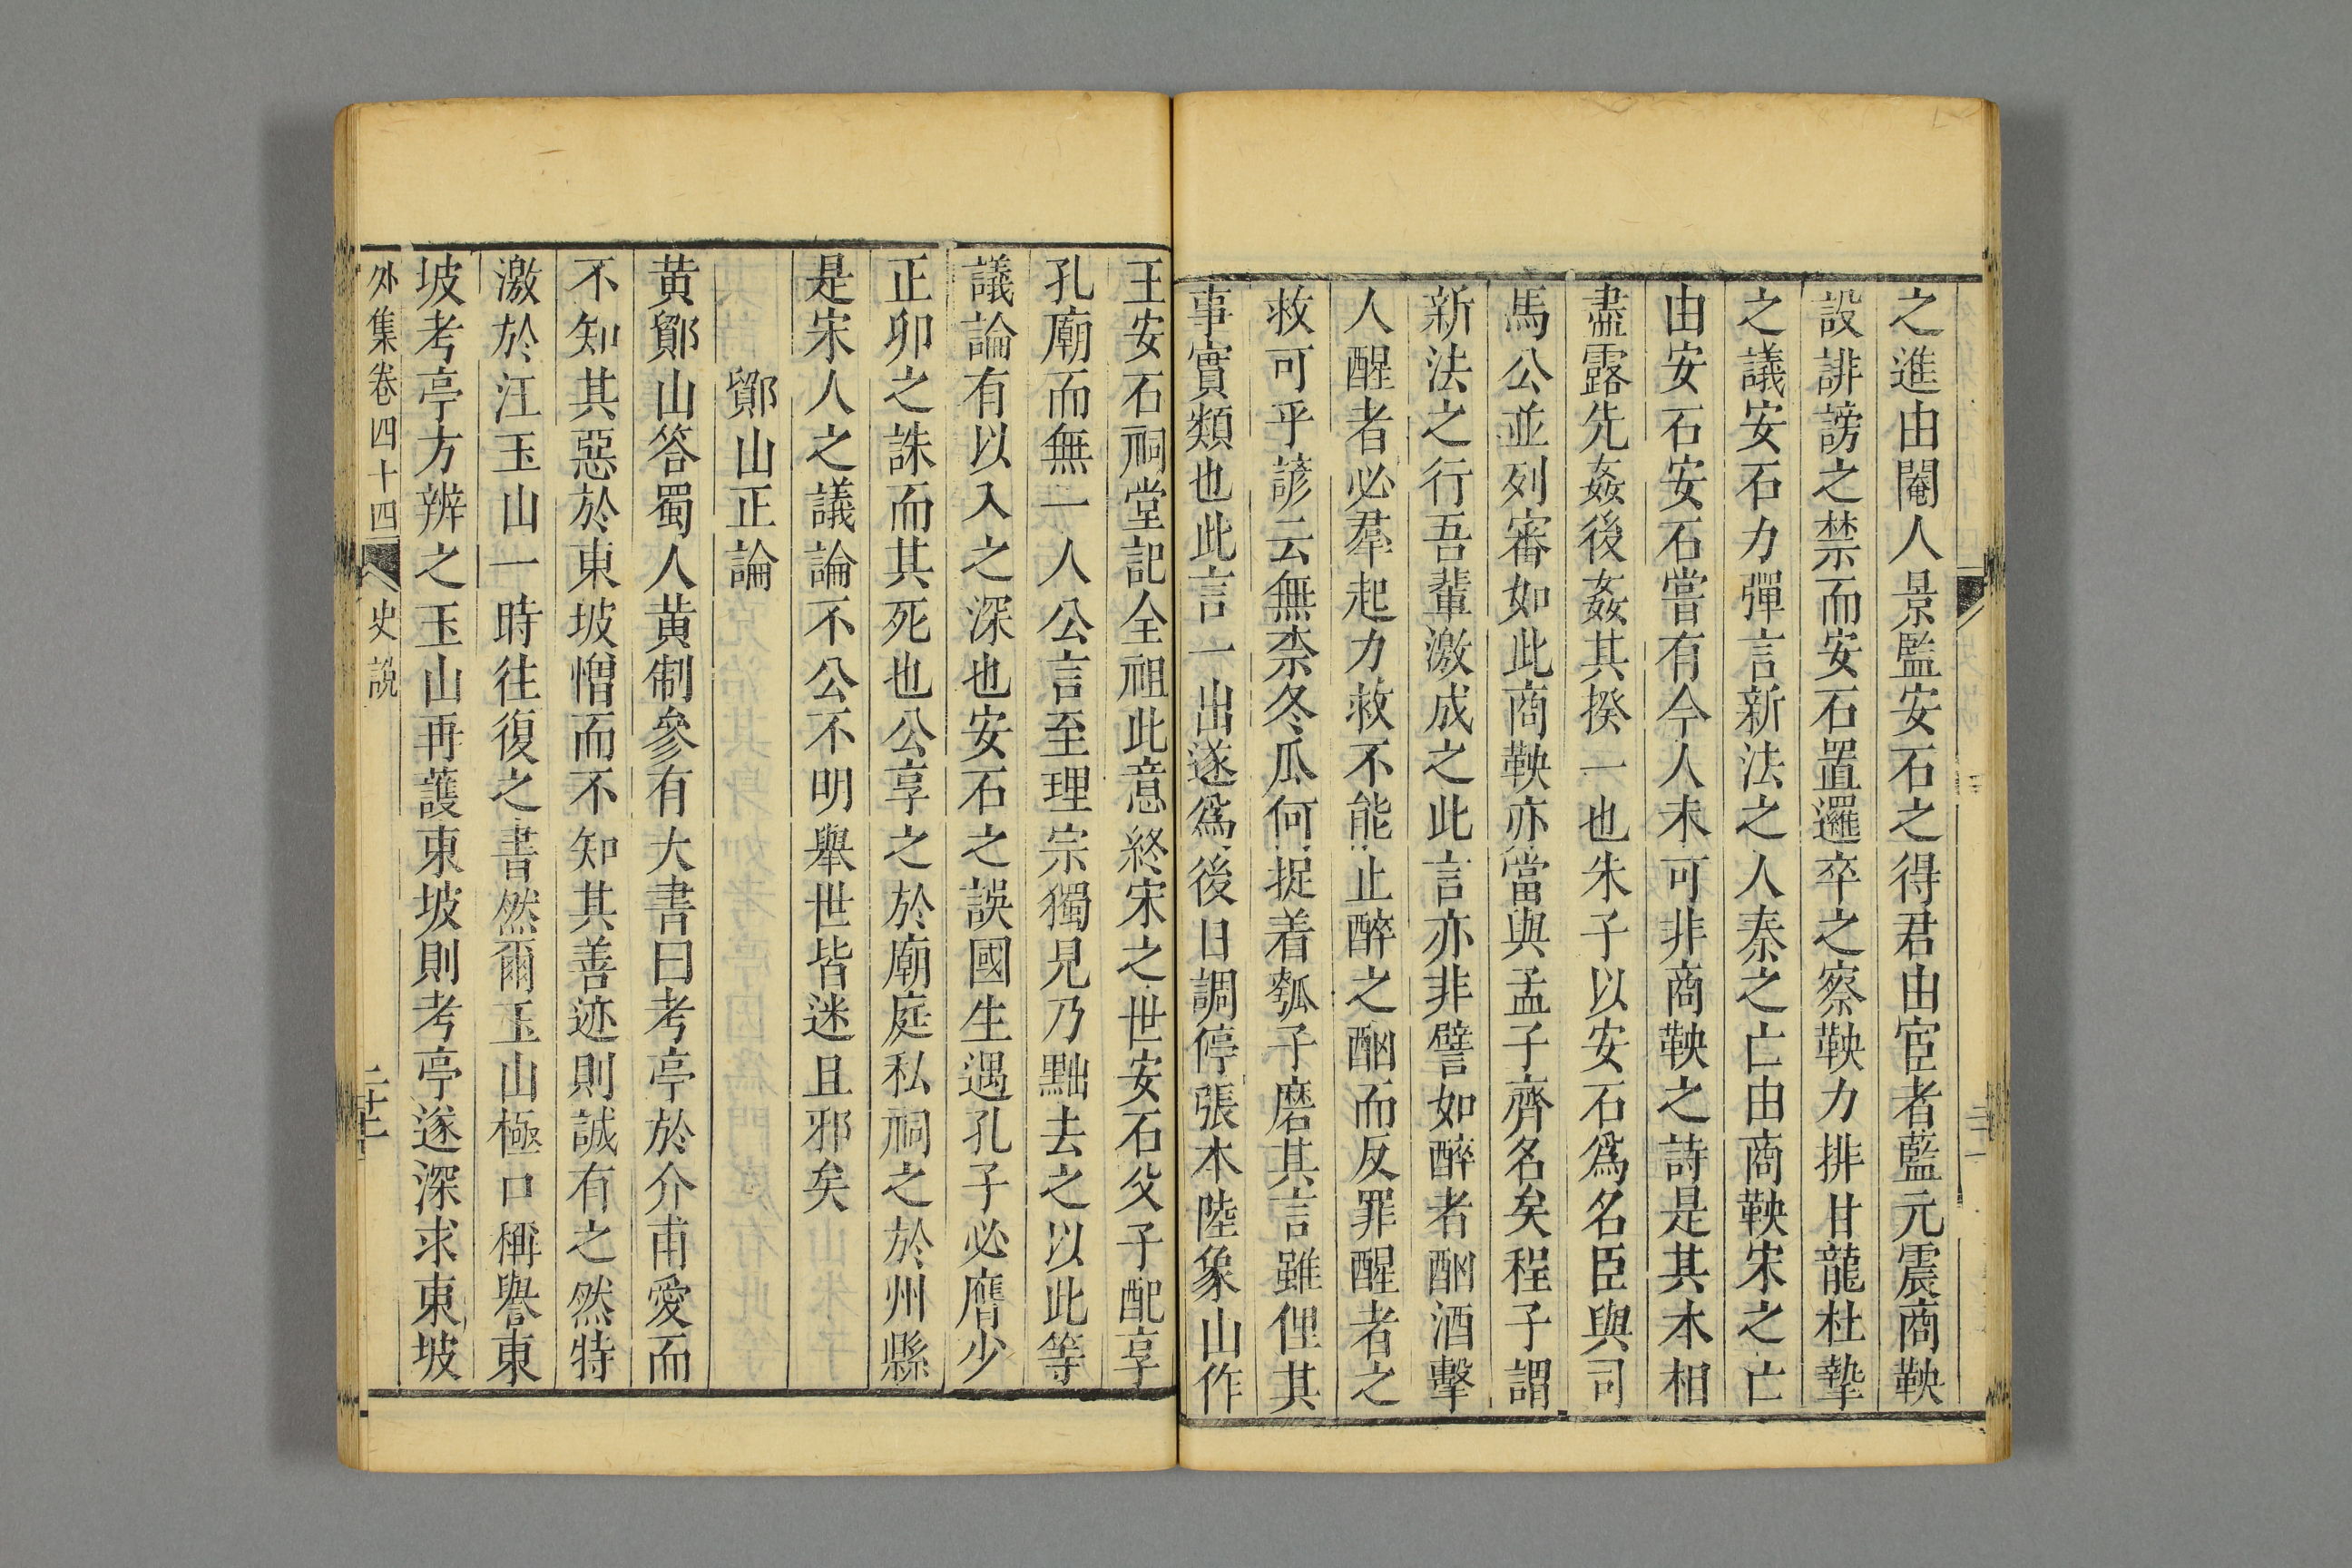 之進由閹人景監安石之得君由宦者藍元震商鞅
設誹謗之禁而安石置邏卒之察鞅力排甘龍杜摯
之議安石力彈言新法之人秦之亡由商鞅宋之亡
由安石安石嘗有今人未可非商鞅之詩是其本相
盡露先姦後姦其揆一也朱子以安石爲名臣與司
馬公並列審如此商鞅亦當與孟子齊名矣程子謂
新法之行吾輩激成之此言亦非譬如醉者酗酒擊
人醒者必羣起力救不能止醉之酗而反罪醒者之
救可乎諺云無柰冬瓜何捉着瓠子磨其言雖俚其
事實類也此言一出遂爲後日調停張本陸象山作
王安石祠堂記全祖此意終宋之世安石父子配享
孔廟而無一人公言至理宗獨見乃黜去之以此等
議論有以入之深也安石之誤國生遇孔子必膺少
正卯之誅而其死也公享之於廟庭私祠之於州縣
是宋人之議論不公不明舉世皆迷且邪矣
鄮山正論
黃鄮山答蜀人黃制參有大書曰考亭於介甫愛而
不知其惡於東坡憎而不知其善迹則誠有之然特
激於江玉山一時往復之書然爾玉山極口稱譽東
坡考亭方辨之玉山再護東坡則考亭遂深求東坡
外集卷四十四 史說